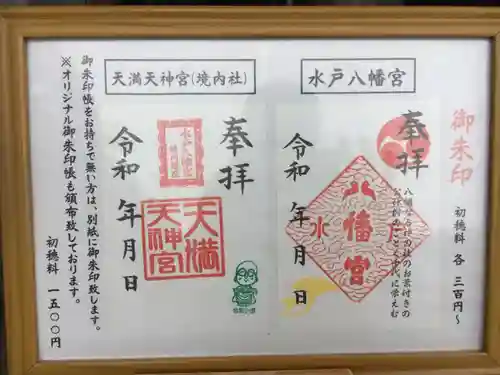 御朱印
初穂料 各 三百円〜
水戸八幡宮
奉拝
八幡宮
水
令和 年 月 日
天満天神宮(境内社)
奉拝
水戸八幡宮
天満
天神宮
令和 年 月 日
御朱印帳をお持ちで無い方は、別紙に御朱印致します。
※オリジナル御朱印帳も頒布致しております。
初穂料 一五〇〇円